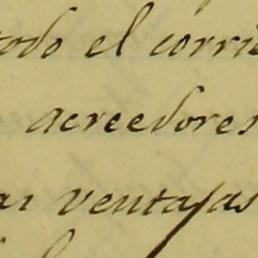 todo el corrie
acreedores
ar ventajas